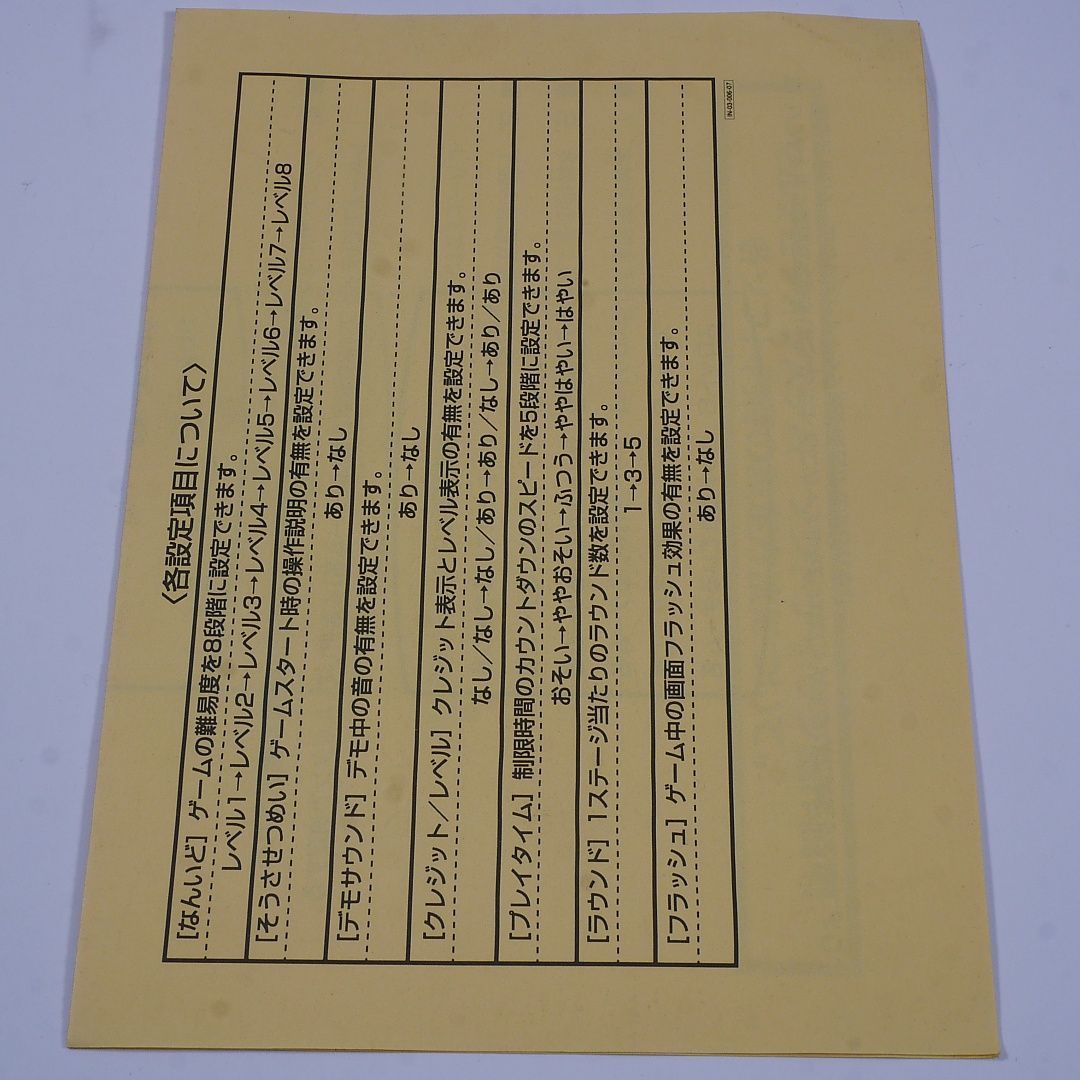 〈各設定項目について〉
[なんいど] ゲームの難易度を8段階に設定できます。
レベル1→レベル2→レベル3→レベル4→レベル5→レベル6→レベル7→レベル8
[そうさせつめい] ゲームスタート時の操作説明の有無を設定できます。
あり→なし
[デモサウンド] デモ中の音の有無を設定できます。
あり→なし
[クレジット/レベル] クレジット表示とレベル表示の有無を設定できます。
なし/なし→なし/あり→あり/なし→あり/あり
[プレイタイム] 制限時間のカウントダウンのスピードを5段階に設定できます。
おそい→ややおそい→ふつう→ややはやい→はやい
[ラウンド] 1ステージ当たりのラウンド数を設定できます。
1→3→5
[フラッシュ] ゲーム中の画面フラッシュ効果の有無を設定できます。
あり→なし
IN-03-006-07